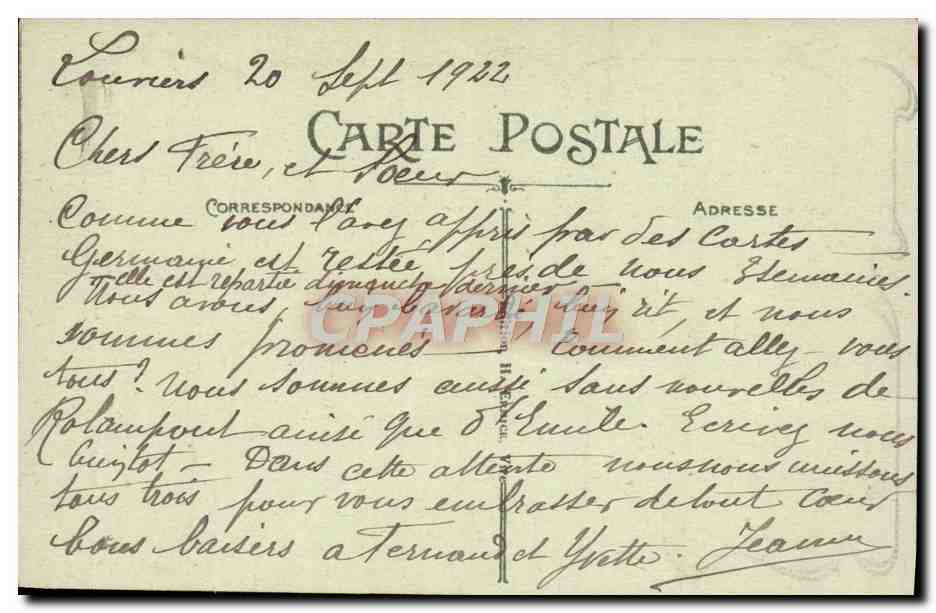 Louviers 20 Sept 1922
CARTE POSTALE
Chers Frère, et Soeur
CORRESPONDANCE
ADRESSE
Comme vous l'avez appris par des Cartes
Germaine est restée près de nous 3 semaines.
elle est repartie dimanche dernier
Nous avons, bien bavardé bien rit, et nous
sommes promenés — Comment allez-vous
tous? Nous sommes aussi sans nouvelles de
Rolampont ainsi que d'Emile. Ecrivez nous
bientot — Dans cette attente nous nous unissons
tous trois pour vous embrasser de tout coeur
bons baisers a Fernand et Yvette. Jeanne
CPAPHIL